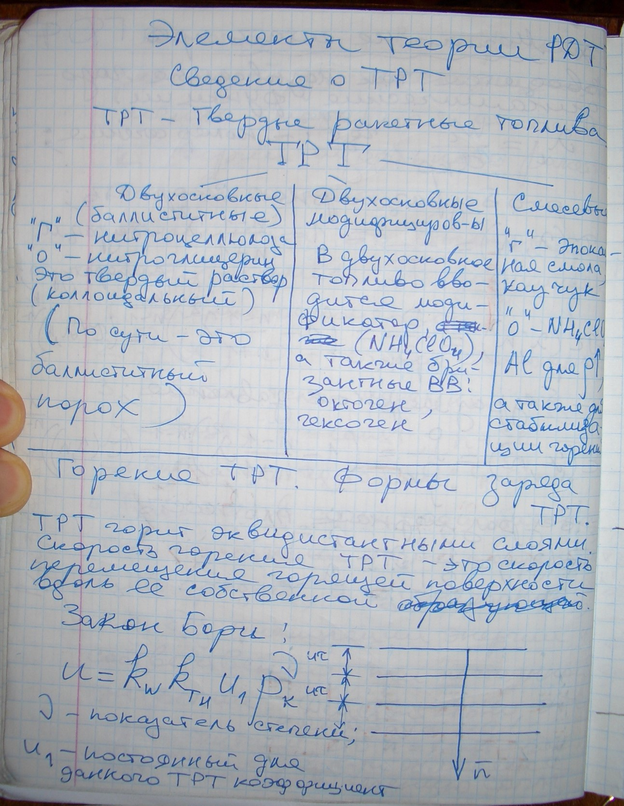 Элементы теории РДТ
Сведения о ТРТ
ТРТ – Твердые ракетные топлива
ТРТ
Двухосновные
(баллиститные)
"Г" – нитроцеллюлоза
"О" – нитроглицерин
Это твердый раствор
(коллоидальный)
(По сути – это
баллиститный
порох)
Двухосновные
модифициров-ы
В двухосновное
топливо вво-
дится моди-
фикатор,
(NH4ClO4),
а также бри-
зантные ВВ:
октоген,
гексоген
Смесевы
"Г" – Эпокс
ная смола,
каучук
"О" – NH4ClO
Al для ρ↑,
а также дл
стабилиза-
ции горени
Горение ТРТ. Формы заряда
ТРТ.
ТРТ горит эквидистантными слоями.
Скорость горения ТРТ – это скорость
перемещения горящей поверхности
вдоль ее собственной
Закон Бори:
u = kw kтн u1 pк^ν
uτ
uτ
n̄
ν – показатель степени;
u1 – постоянный для
данного ТРТ коэффициент